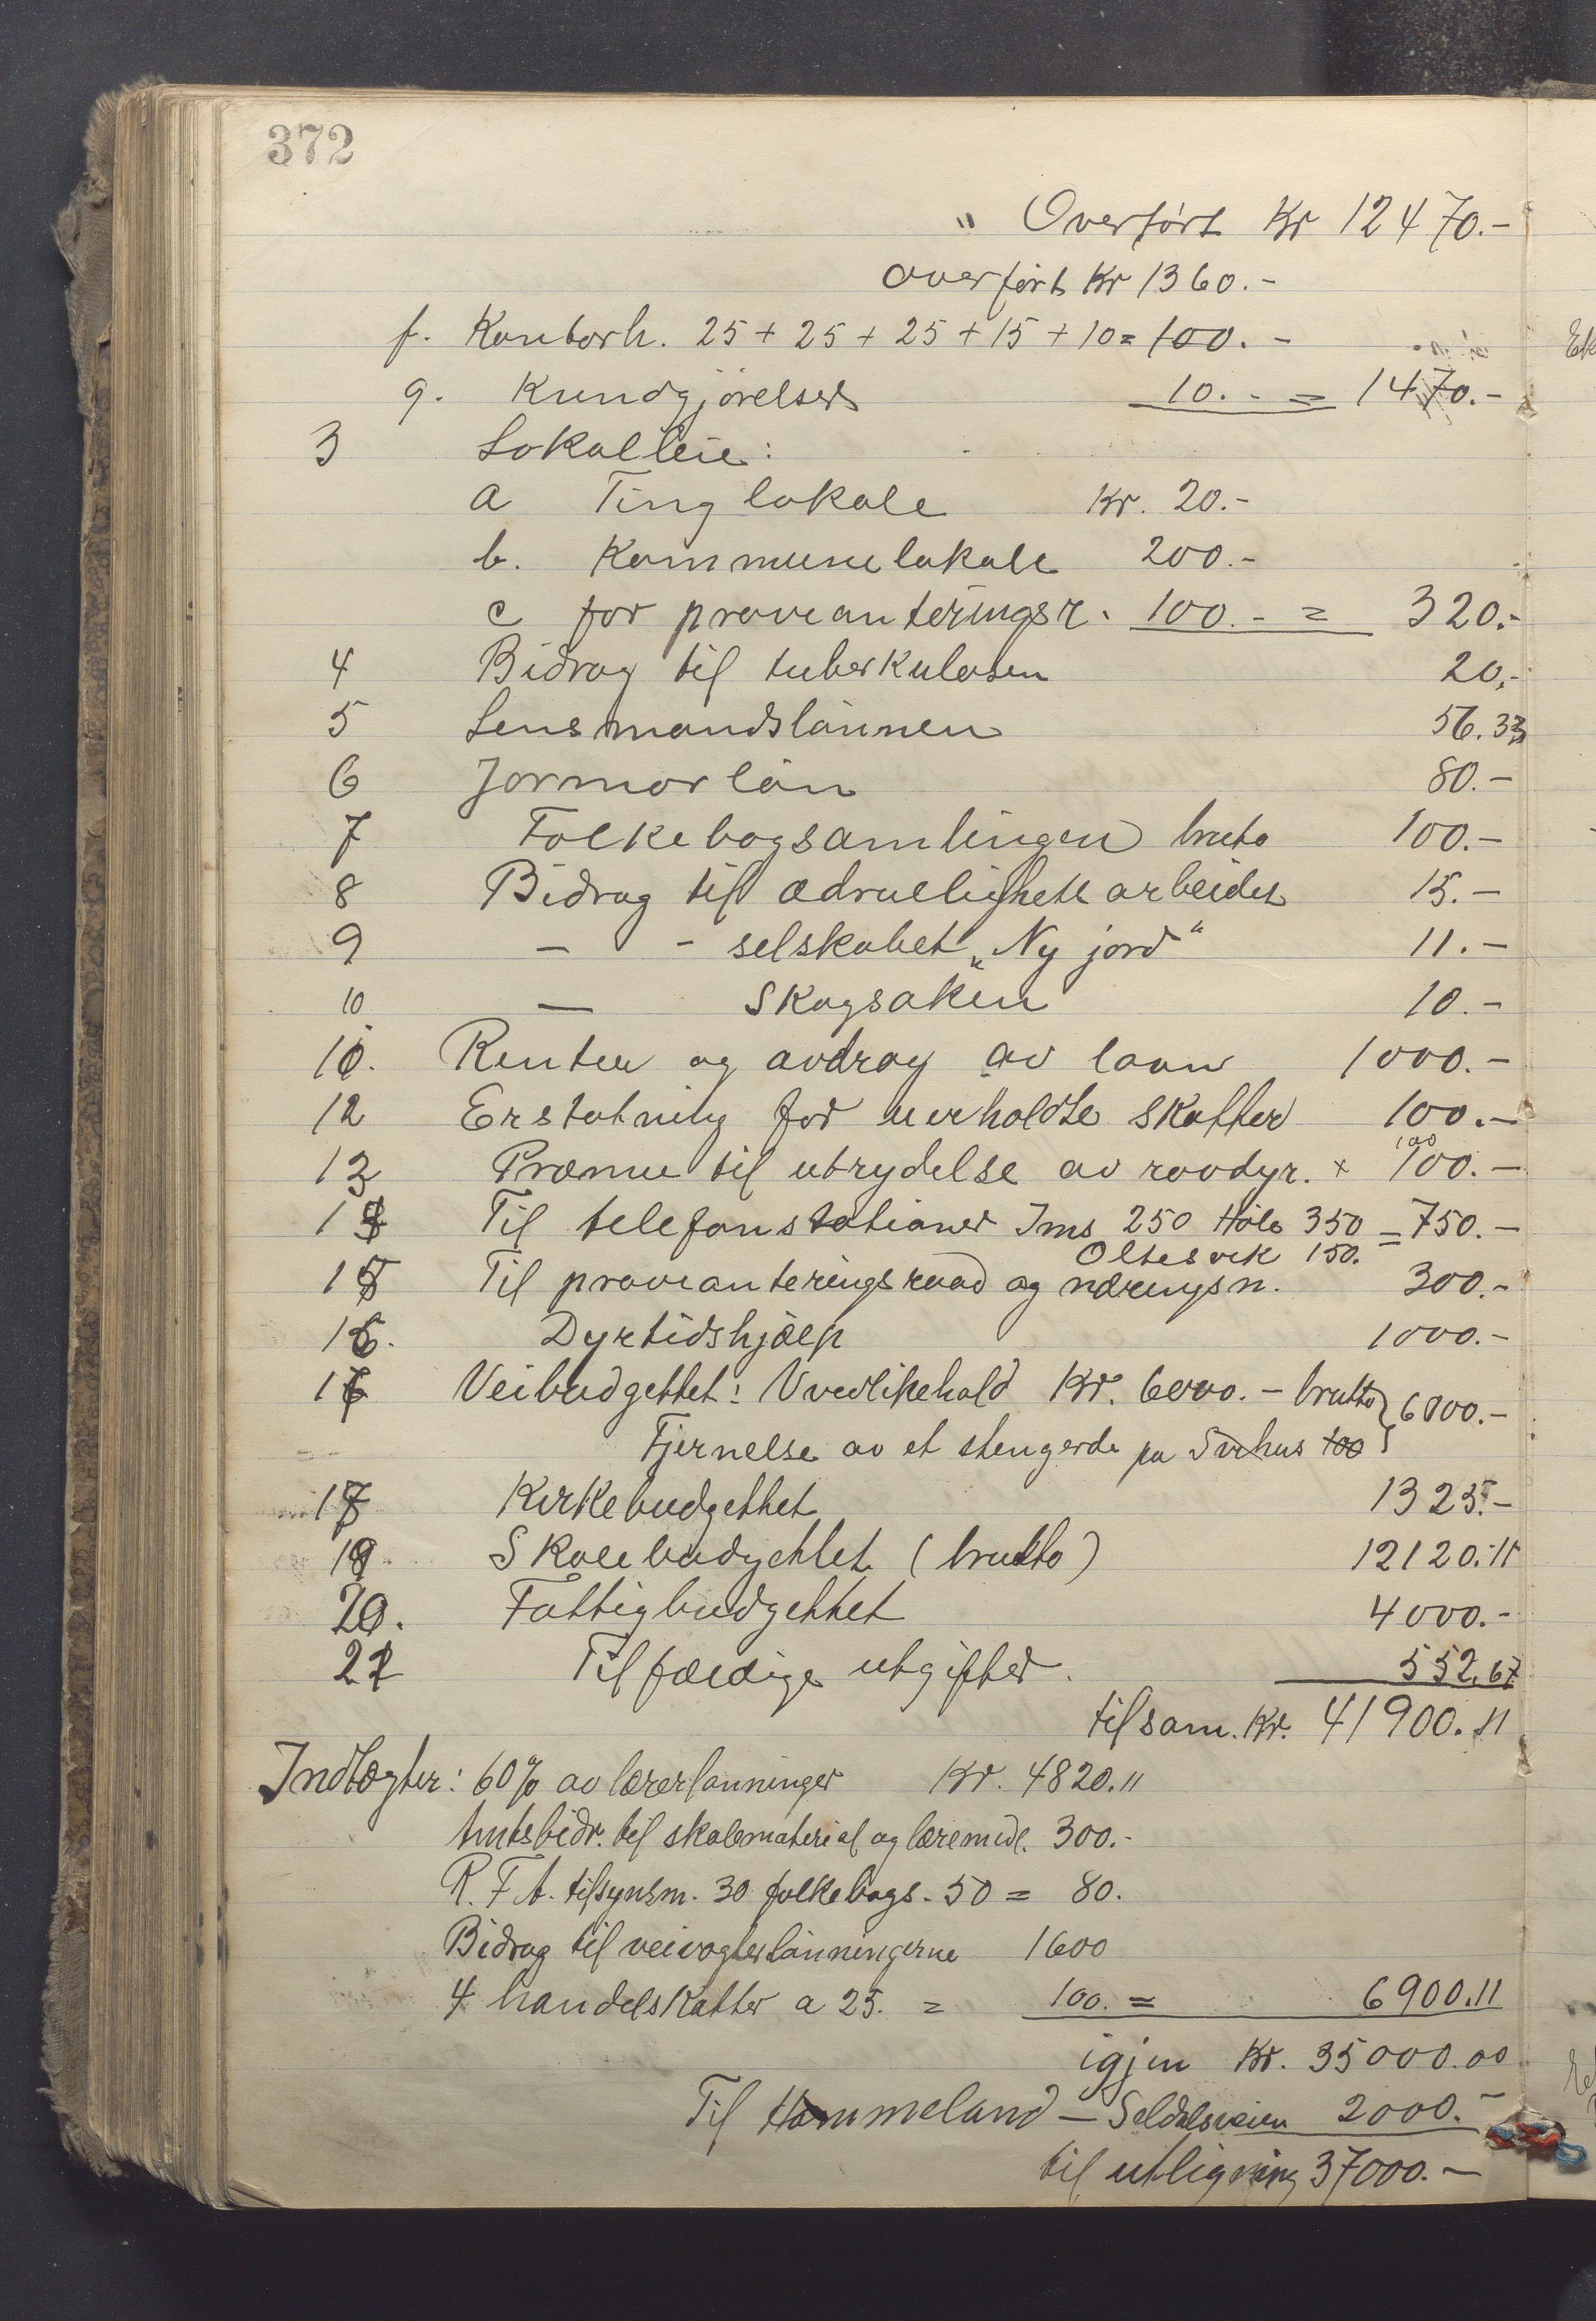 372
" Overført Kr 12470.-
overført Kr 1360.-
f. Kontorh. 25 + 25 + 25 + 15 + 10 = 100.-
g. Kundgjørelser 10.- = 1470.-
3 Lokalleie:
a Tinglokale Kr. 20.-
b. Kommunelokale 200.-
c for provianteringsr. 100.- = 320.-
4 Bidrag til tuberkulosen 20,-
5 Lensmandslønnen 56.33
6 Jormorløn 80.-
7 Folkebogsamlingen bruto 100.-
8 Bidrag til ædruelighetsarbeidet 15.-
9 - - selskabet „Ny jord“ 11.-
10 — Skogsaken 10.-
10. Renter og avdrag av laan 1000.-
12 Erstatning for uerholdte skatter 100.-
13 Præmie til utrydelse av rovdyr. x 100.-
100
14 Til telefonstationer Ims 250 Høle 350 = 750.-
Oltesvik 150.
15 Til provianteringsraad og næringsn. 300.-
16. Dyrtidshjælp 1000.-
17 Veibudgettet: Vedlikehold Kr. 6000.- brutto } 6000.-
Fjernelse av et stengerde paa Svihus 100
17 Kirkebudgettet 1325.-
19 Skolebudgettet (brutto) 12120.11
20. Fattigbudgettet 4000.-
21 Tilfældige utgifter. 552.67
tilsam. Kr. 41900.11
Indtægter: 60% av lærerlønninger Kr. 4820.11
Amtsbidr. til skolemateriel og læremidl. 300.-
R.F.A. tilsynsm. 30 folkebogs. 50 = 80.
Bidrag til veivogterlønningerne 1600
4 handelskatter a 25. = 100. = 6900.11
igjen Kr. 35000.00
Til Hommeland - Seldalsveien 2000.-
til utligning 37000.-